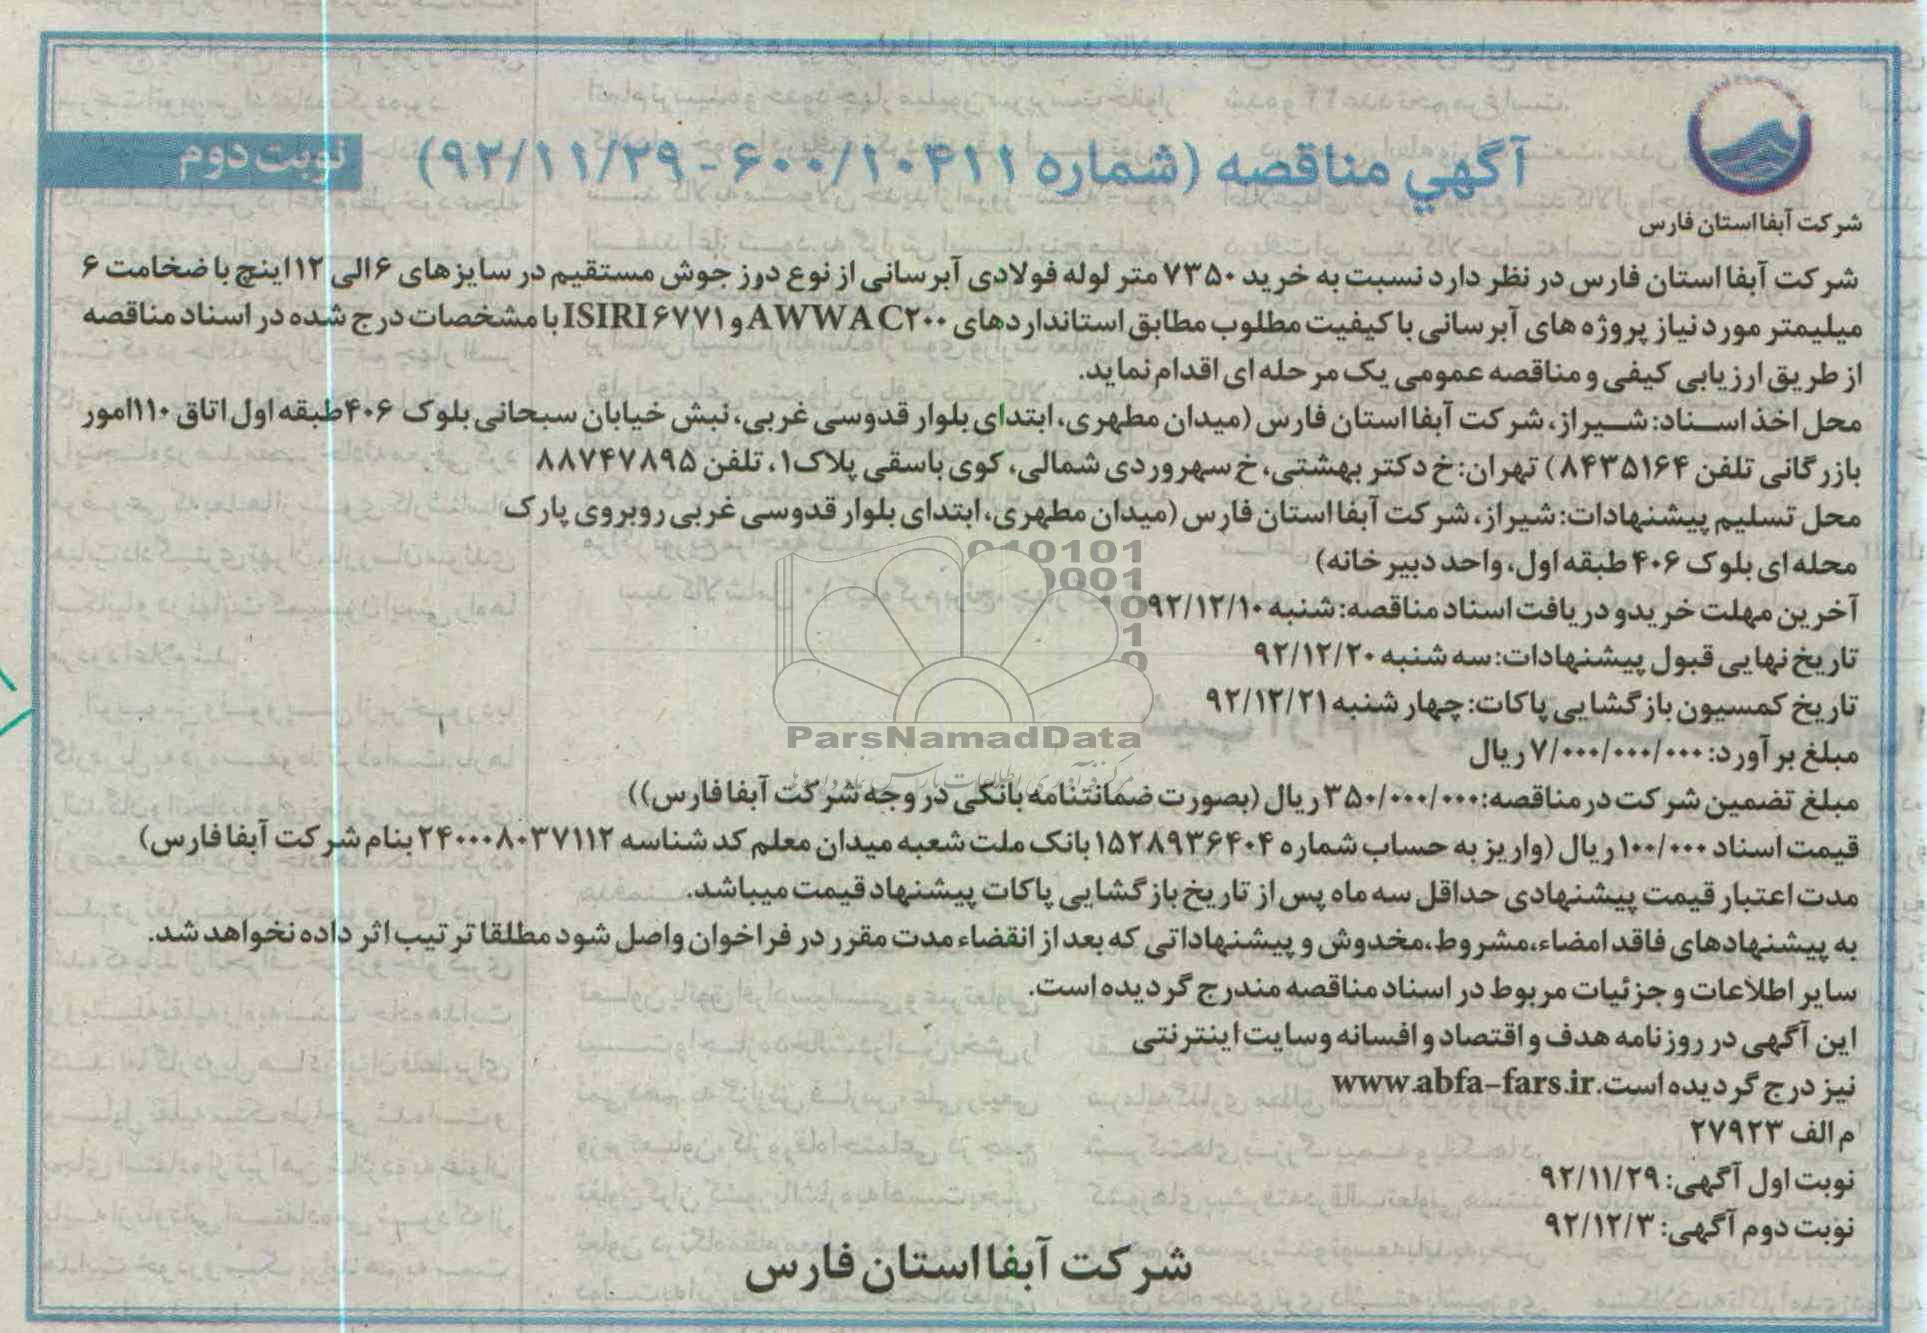 آگهي مناقصه (شماره ۶۰۰/۱۰۴۱۱ - ۹۲/۱۱/۲۹)
نوبت دوم
شرکت آبفا استان فارس
شرکت آبفا استان فارس در نظر دارد نسبت به خرید ۷۳۵۰ متر لوله فولادی آبرسانی از نوع درز جوش مستقیم در سایزهای ۶ الی ۱۲ اینچ با ضخامت ۶
میلیمتر مورد نیاز پروژه های آبرسانی با کیفیت مطلوب مطابق استانداردهای AWWA C۲۰۰ و ISIRI ۶۷۷۱ با مشخصات درج شده در اسناد مناقصه
از طریق ارزیابی کیفی و مناقصه عمومی یک مرحله ای اقدام نماید.
محل اخذ اسناد: شیراز، شرکت آبفا استان فارس (میدان مطهری، ابتدای بلوار قدوسی غربی، نبش خیابان سبحانی بلوک ۴۰۶ طبقه اول اتاق ۱۱۰ امور
بازرگانی تلفن ۸۴۳۵۱۶۴) تهران: خ دکتر بهشتی، خ سهروردی شمالی، کوی باسقی پلاک۱، تلفن ۸۸۷۴۷۸۹۵
محل تسلیم پیشنهادات: شیراز، شرکت آبفا استان فارس (میدان مطهری، ابتدای بلوار قدوسی غربی روبروی پارک
محله ای بلوک ۴۰۶ طبقه اول، واحد دبیرخانه)
آخرین مهلت خرید و دریافت اسناد مناقصه: شنبه ۹۲/۱۲/۱۰
تاریخ نهایی قبول پیشنهادات: سه شنبه ۹۲/۱۲/۲۰
تاریخ کمسیون بازگشایی پاکات: چهار شنبه ۹۲/۱۲/۲۱
مبلغ برآورد: ۷/۰۰۰/۰۰۰/۰۰۰ ریال
مبلغ تضمین شرکت در مناقصه: ۳۵۰/۰۰۰/۰۰۰ ریال (بصورت ضمانتنامه بانکی در وجه شرکت آبفا فارس))
قیمت اسناد ۱۰۰/۰۰۰ ریال (واریز به حساب شماره ۱۵۲۸۹۳۶۴۰۴ بانک ملت شعبه میدان معلم کد شناسه ۲۴۰۰۰۸۰۳۷۱۱۲ بنام شرکت آبفا فارس)
مدت اعتبار قیمت پیشنهادی حداقل سه ماه پس از تاریخ بازگشایی پاکات پیشنهاد قیمت میباشد.
به پیشنهادهای فاقد امضاء، مشروط، مخدوش و پیشنهاداتی که بعد از انقضاء مدت مقرر در فراخوان واصل شود مطلقا ترتیب اثر داده نخواهد شد.
سایر اطلاعات و جزئیات مربوط در اسناد مناقصه مندرج گردیده است.
این آگهی در روزنامه هدف و اقتصاد و افسانه و سایت اینترنتی
نیز درج گردیده است. www.abfa-fars.ir
م الف ۲۷۹۲۳
نوبت اول آگهی: ۹۲/۱۱/۲۹
نوبت دوم آگهی: ۹۲/۱۲/۳
شرکت آبفا استان فارس
010101
0001
101
1
0
ParsNamadData